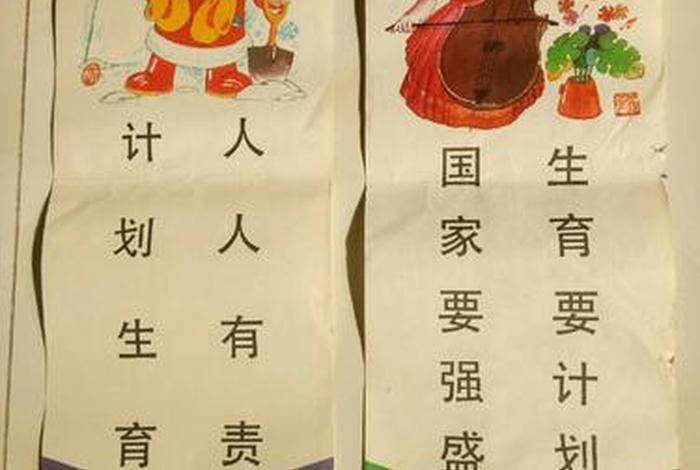 计划生育
人人有责
国家要强盛
生育要计划